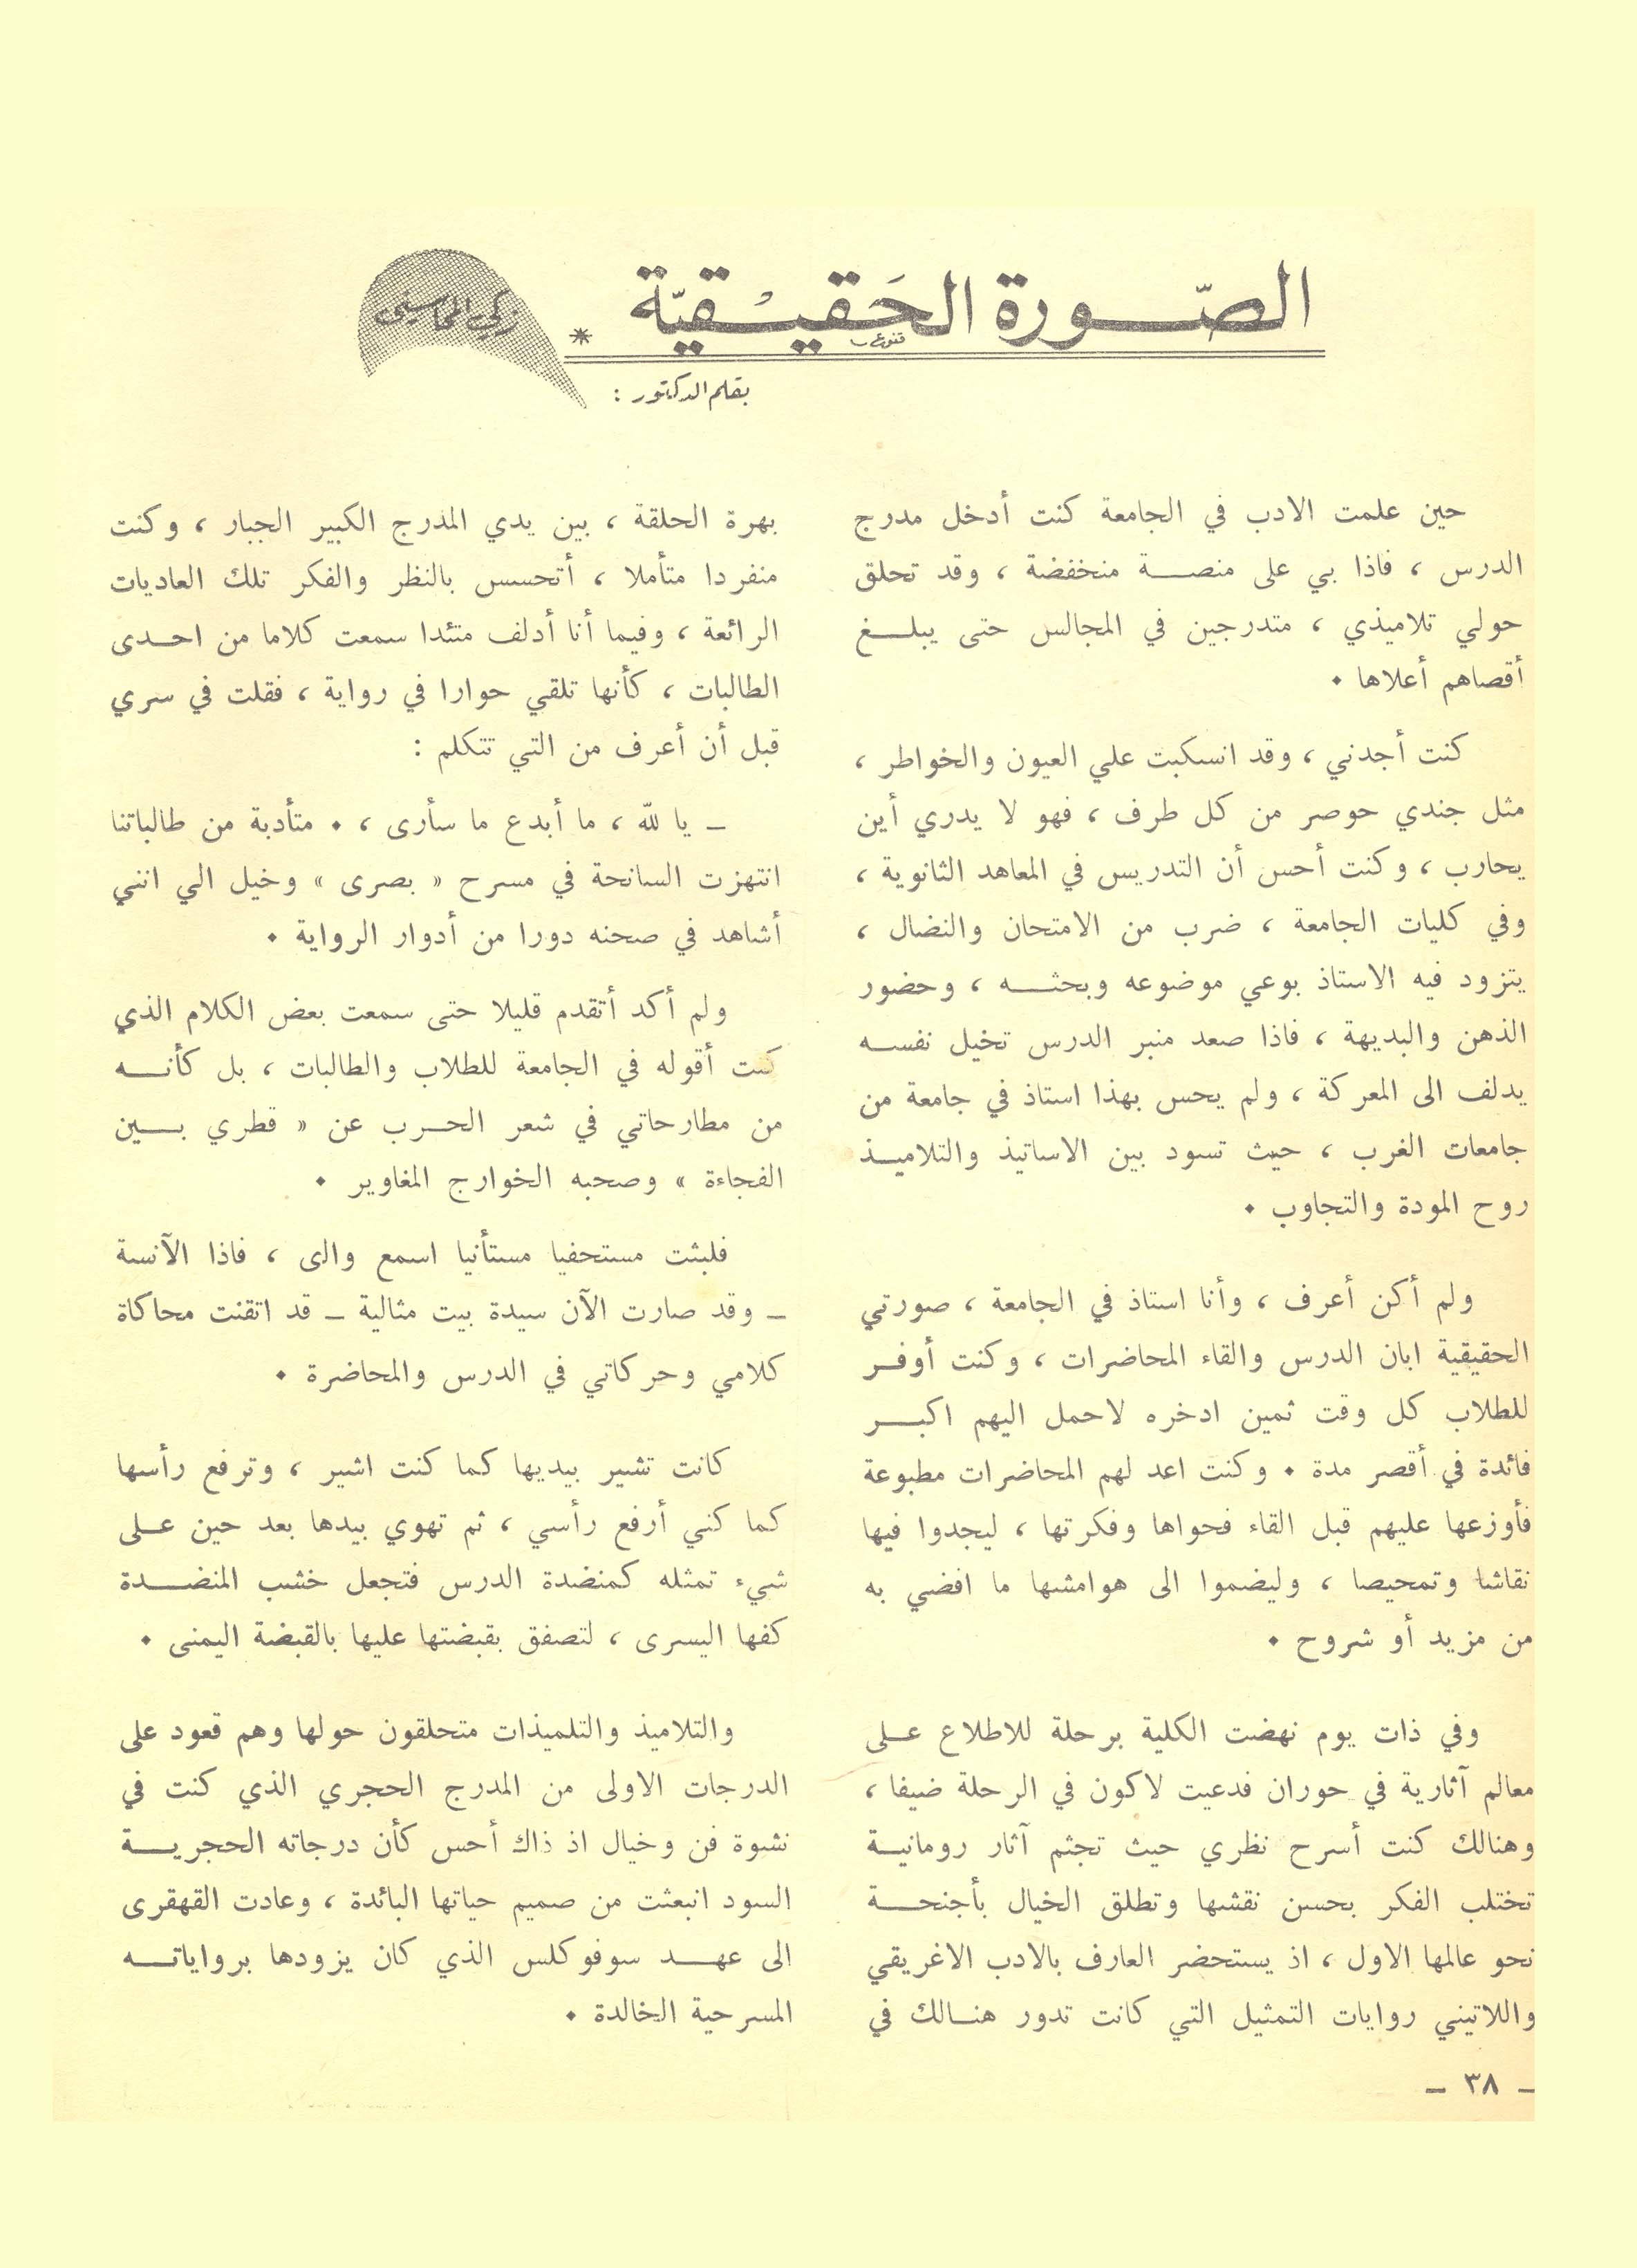 الصّورة الحَقيْقيّة *
بقلم الدكتور :
زكي المحاسني
حين علمت الادب في الجامعة كنت أدخل مدرج
الدرس ، فاذا بي على منصة منخفضة ، وقد تحلق
حولي تلاميذي ، متدرجين في المجالس حتى يبلغ
أقصاهم أعلاها .
كنت أجدني ، وقد انسكبت علي العيون والخواطر ،
مثل جندي حوصر من كل طرف ، فهو لا يدري أين
يحارب ، وكنت أحس أن التدريس في المعاهد الثانوية ،
وفي كليات الجامعة ، ضرب من الامتحان والنضال ،
يتزود فيه الاستاذ بوعي موضوعه وبحثه ، وحضور
الذهن والبديهة ، فاذا صعد منبر الدرس تخيل نفسه
يدلف الى المعركة ، ولم يحس بهذا استاذ في جامعة من
جامعات الغرب ، حيث تسود بين الاساتيذ والتلاميذ
روح المودة والتجاوب .
ولم أكن أعرف ، وأنا استاذ في الجامعة ، صورتي
الحقيقية ابان الدرس والقاء المحاضرات ، وكنت أوفر
للطلاب كل وقت ثمين ادخره لاحمل اليهم اكبر
فائدة في أقصر مدة . وكنت اعد لهم المحاضرات مطبوعة
فأوزعها عليهم قبل القاء فحواها وفكرتها ، ليجدوا فيها
نقاشا وتمحيصا ، وليضموا الى هوامشها ما افضي به
من مزيد أو شروح .
وفي ذات يوم نهضت الكلية برحلة للاطلاع على
معالم آثارية في حوران فدعيت لاكون في الرحلة ضيفا ،
وهنالك كنت أسرح نظري حيث تجثم آثار رومانية
تختلب الفكر بحسن نقشها وتطلق الخيال بأجنحة
نحو عالمها الاول ، اذ يستحضر العارف بالادب الاغريقي
واللاتيني روايات التمثيل التي كانت تدور هنالك في
بهرة الحلقة ، بين يدي المدرج الكبير الجبار ، وكنت
منفردا متأملا ، أتحسس بالنظر والفكر تلك العاديات
الرائعة ، وفيما أنا أدلف متئدا سمعت كلاما من احدى
الطالبات ، كأنها تلقي حوارا في رواية ، فقلت في سري
قبل أن أعرف من التي تتكلم :
ـ يا لله ، ما أبدع ما سأرى ، . متأدبة من طالباتنا
انتهزت السانحة في مسرح « بصرى » وخيل الي انني
أشاهد في صحنه دورا من أدوار الرواية .
ولم أكد أتقدم قليلا حتى سمعت بعض الكلام الذي
كنت أقوله في الجامعة للطلاب والطالبات ، بل كأنه
من مطارحاتي في شعر الحرب عن « قطري بين
الفجاءة » وصحبه الخوارج المغاوير .
فلبثت مستحفيا مستأنيا اسمع والى ، فاذا الآنسة
ـ وقد صارت الآن سيدة بيت مثالية ـ قد اتقنت محاكاة
كلامي وحركاتي في الدرس والمحاضرة .
كانت تشير بيديها كما كنت اشير ، وترفع رأسها
كما كني أرفع رأسي ، ثم تهوي بيدها بعد حين على
شيء تمثله كمنضدة الدرس فتجعل خشب المنضدة
كفها اليسرى ، لتصفق بقبضتها عليها بالقبضة اليمنى .
والتلاميذ والتلميذات متحلقون حولها وهم قعود على
الدرجات الاولى من المدرج الحجري الذي كنت في
نشوة فن وخيال اذ ذاك أحس كأن درجاته الحجرية
السود انبعثت من صميم حياتها البائدة ، وعادت القهقرى
الى عهد سوفوكلس الذي كان يزودها برواياته
المسرحية الخالدة .
ـ ٣٨ ـ